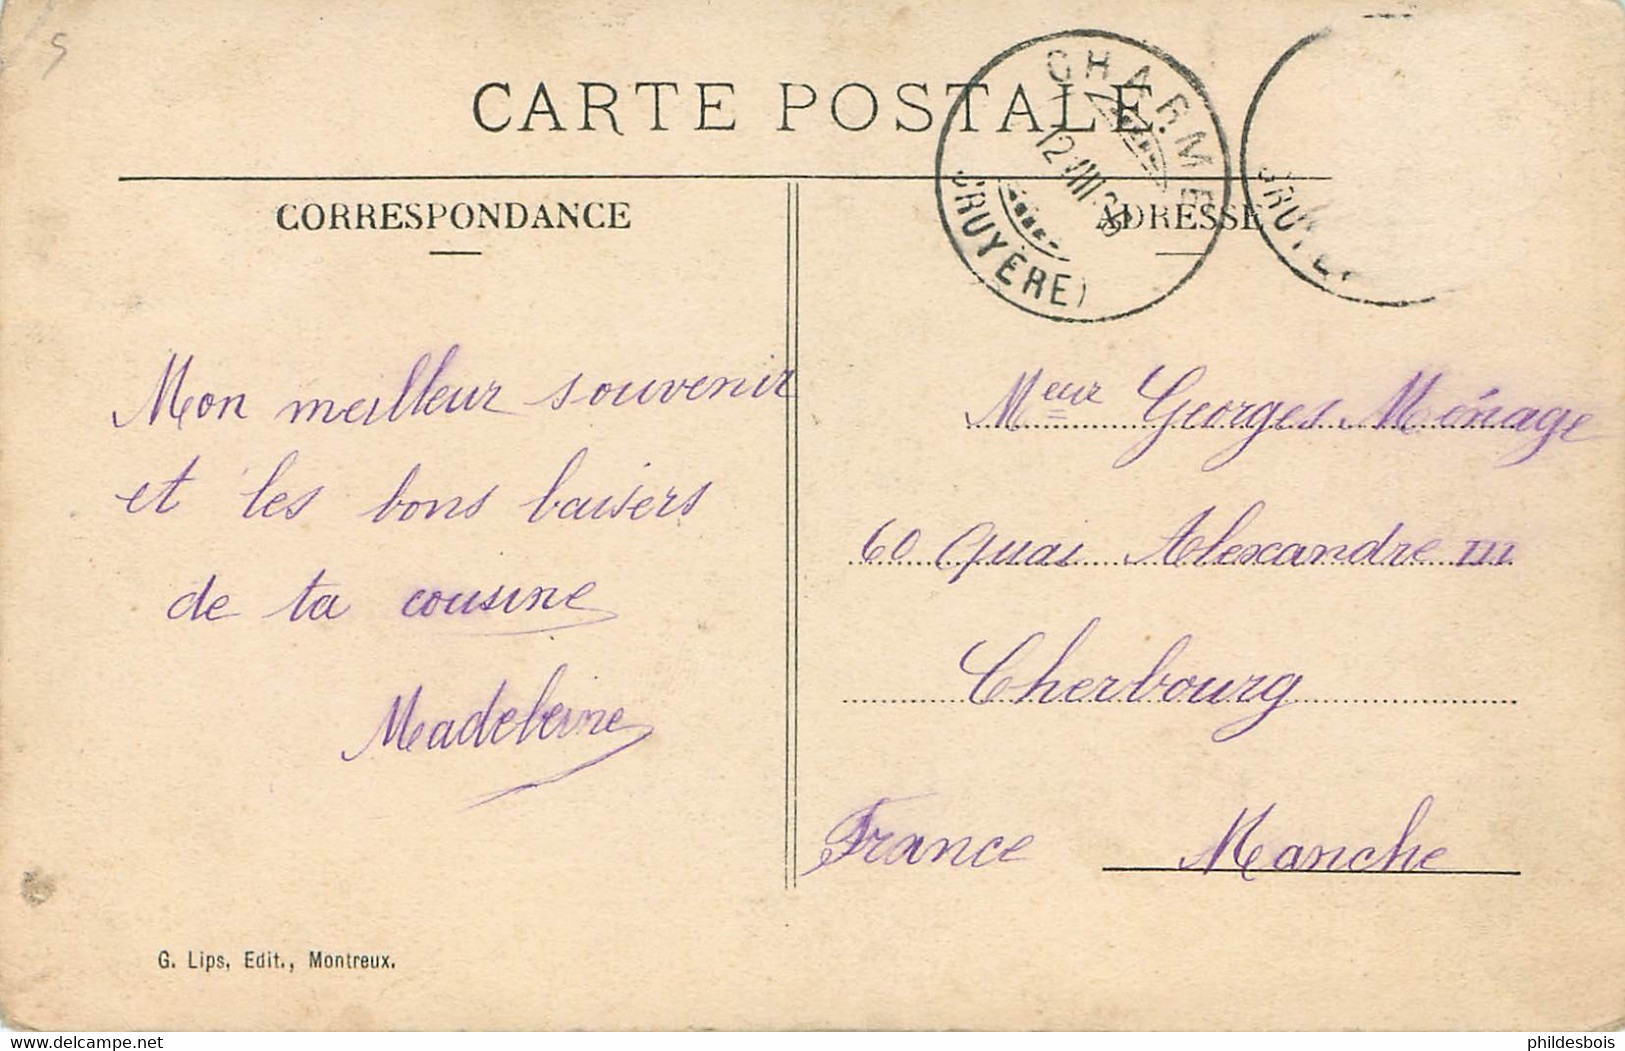 5
CARTE POSTALE
CHARMEY
12.VIII.
(GRUYÈRE)
CORRESPONDANCE
ADRESSE
Mon meilleur souvenir
et les bons baisers
de ta cousine
Madeleine
Meur Georges Ménage
60 Quai Alexandre III
Cherbourg
France Manche
G. Lips, Edit., Montreux.
phildesbois